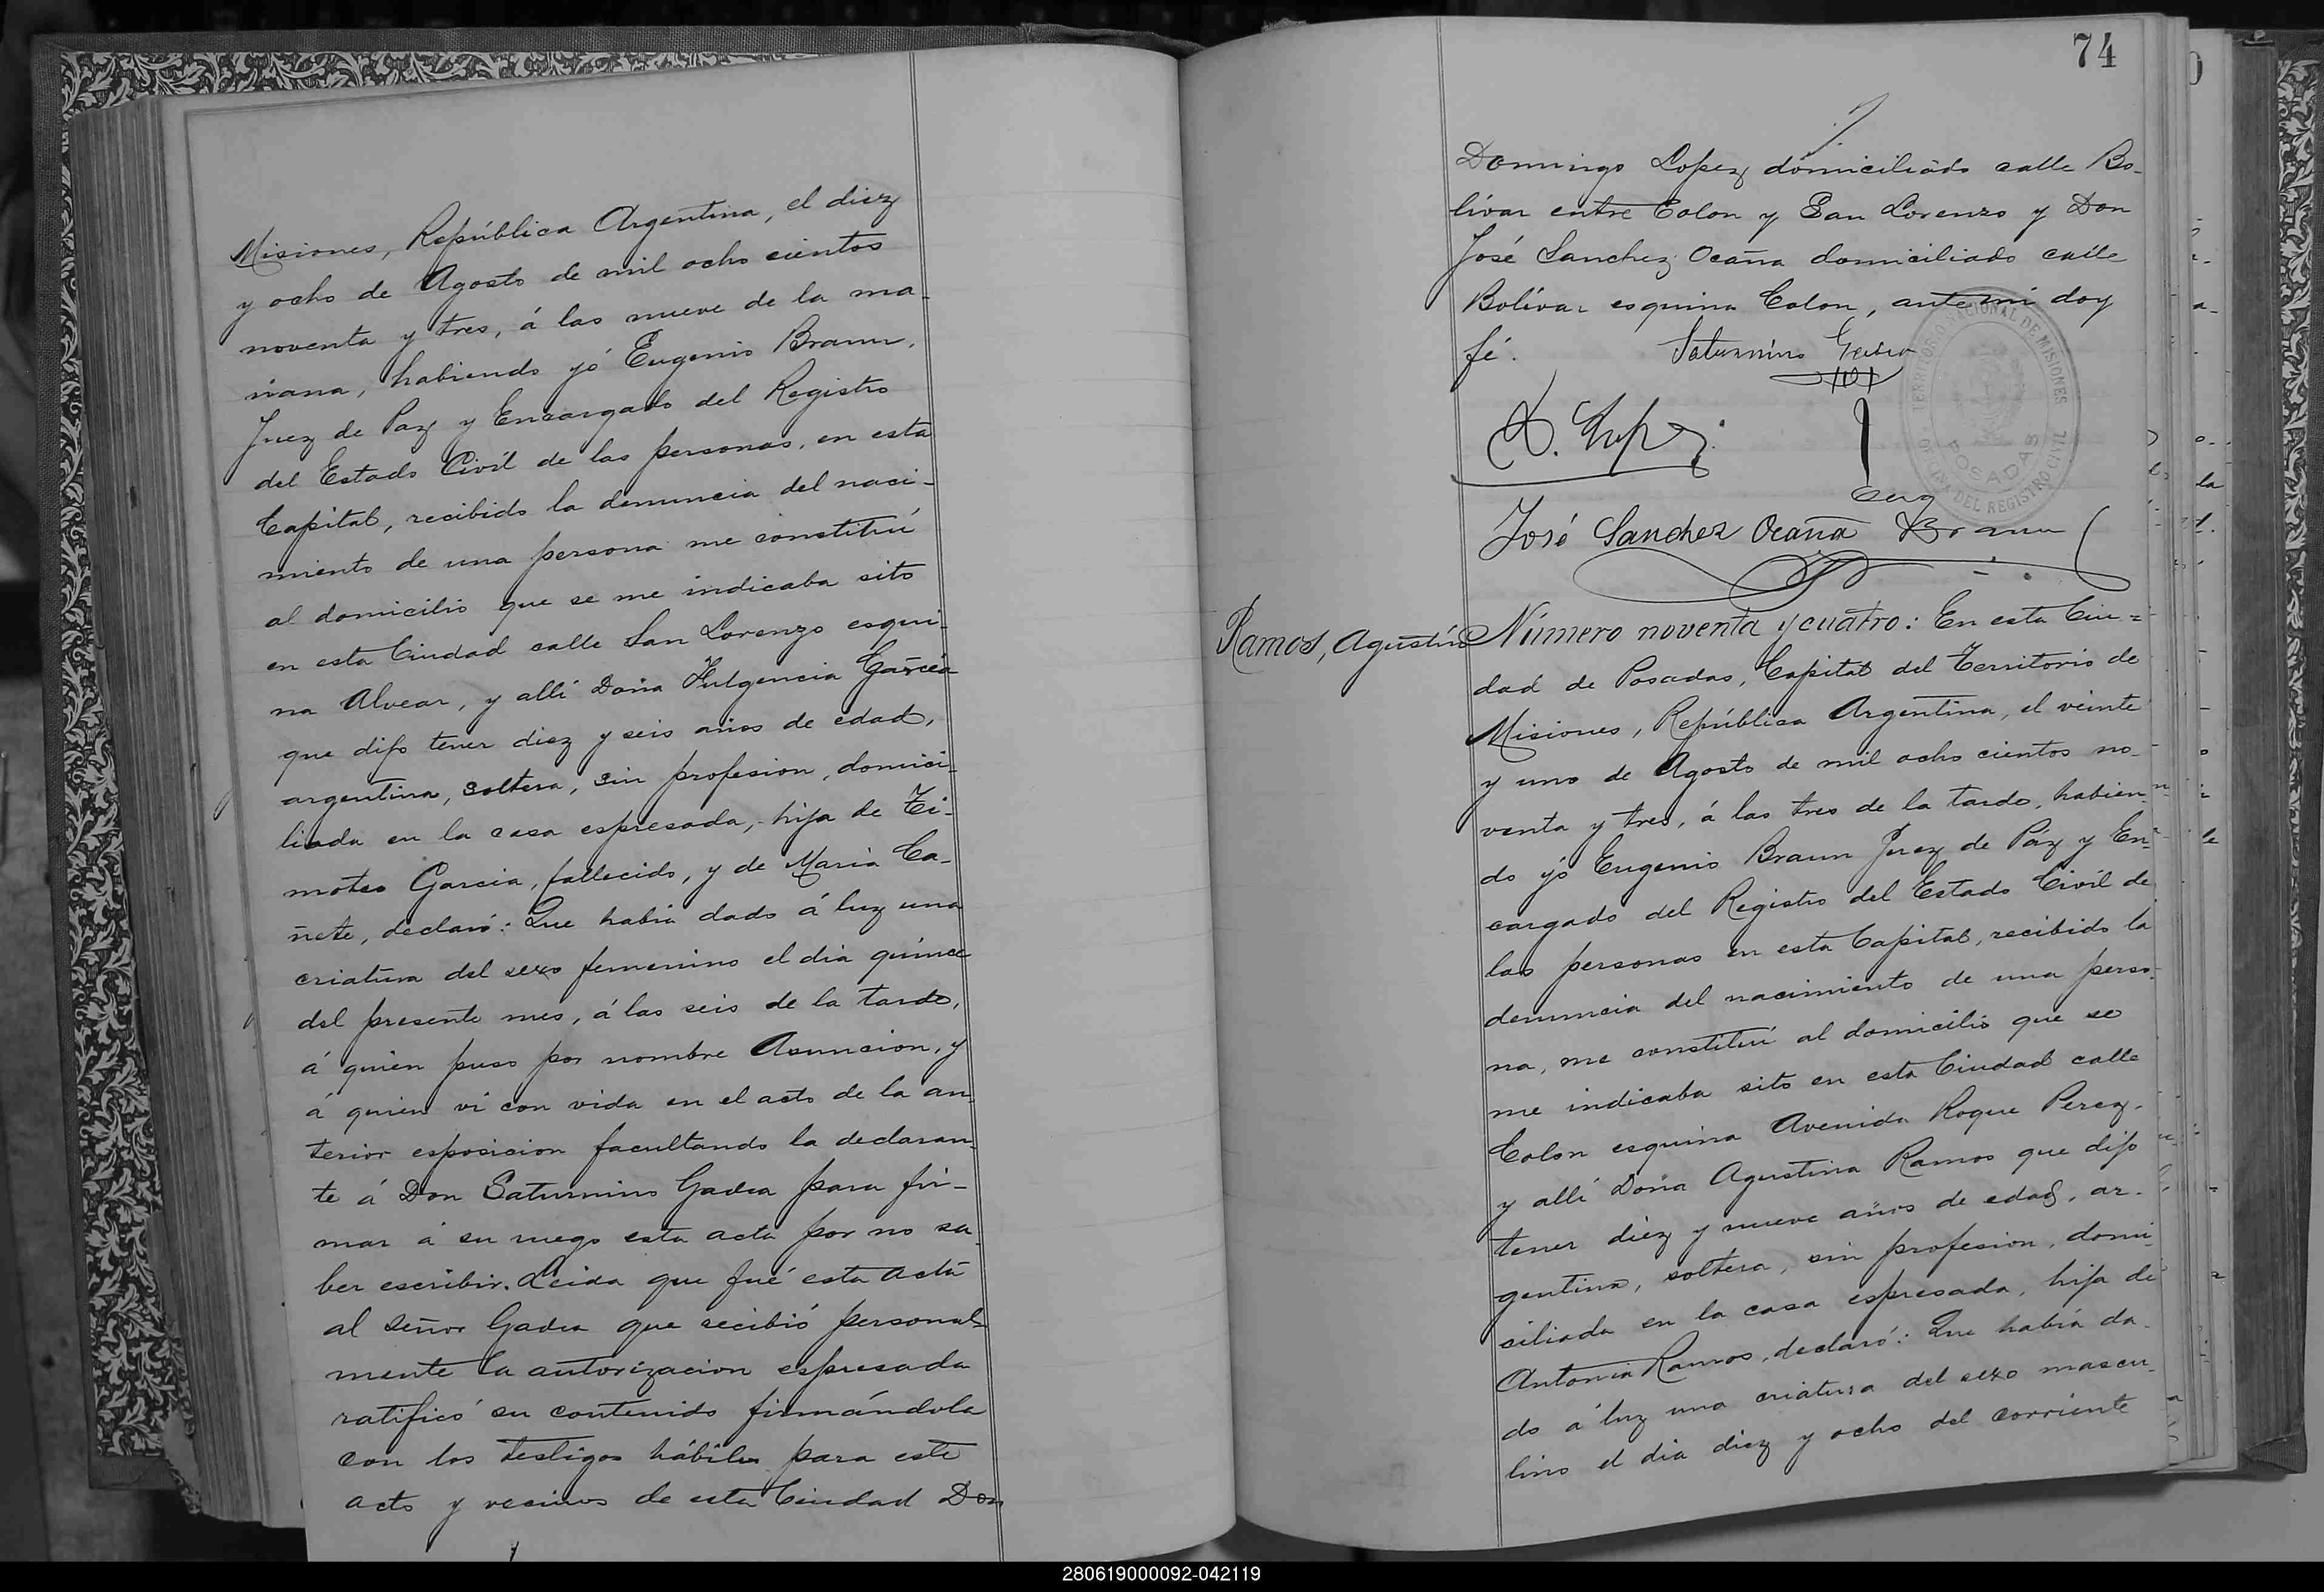 Misiones, República Argentina, el diez
y ocho de Agosto de mil ocho cientos
noventa y tres, á las nueve de la ma-
ñana, habiendo yó Eugenio Braun,
Juez de Paz y Encargado del Registro
del Estado Civil de las personas, en esta
Capital, recibido la denuncia del naci-
miento de una persona me constituí
al domicilio que se me indicaba sito
en esta Ciudad calle San Lorenzo esqui-
na Alvear, y allí Doña Fulgencia García
que dijo tener diez y seis años de edad,
argentina, soltera, sin profesion, domici-
liada en la casa espresada, hija de Ti-
moteo Garcia, fallecido, y de Maria Ca-
ñete, declaró: Que habia dado á luz una
criatura del sexo femenino el dia quince
del presente mes, á las seis de la tarde,
á quien puso por nombre Asuncion, y
á quien ví con vida en el acto de la an-
terior esposicion facultando la declaran-
te á Don Saturnino Gadea para fir-
mar á su ruego esta acta por no sa-
ber escribir. Leida que fué esta acta
al señor Gadea que recibió personal-
mente la autorizacion espresada
ratificó su contenido firmándola
con los testigos hábiles para este
acto y vecinos de esta Ciudad Don
74
Domingo Lopez domiciliado calle Bo-
lívar entre Colon y San Lorenzo y Don
José Sanchez Ocaña domiciliado calle
Bolívar esquina Colon, ante mí doy
fé.
Saturnino Gadea
TERRITORIO NACIONAL DE MISIONES
POSADAS
OFICINA DEL REGISTRO CIVIL
D. Lopez
Eug
José Sanchez Ocaña Braun
Ramos, Agustín
Número noventa y cuatro: En esta Ciu=
dad de Posadas, Capital del Territorio de
Misiones, República Argentina, el veinte
y uno de Agosto de mil ocho cientos no-
venta y tres, á las tres de la tarde, habien-
do yó Eugenio Braun Juez de Páz y En-
cargado del Registro del Estado Civil de
las personas en esta Capital, recibido la
denuncia del nacimiento de una perso-
na, me constituí al domicilio que se
me indicaba sito en esta Ciudad calle
Colon esquina Avenida Roque Perez,
y allí Doña Agustina Ramos que dijo
tener diez y nueve años de edad, ar-
gentina, soltera, sin profesion, domi-
ciliada en la casa espresada, hija de
Antonia Ramos, declaró: Que había da-
do á luz una criatura del sexo mascu-
lino el dia diez y ocho del corriente
280619000092-042119